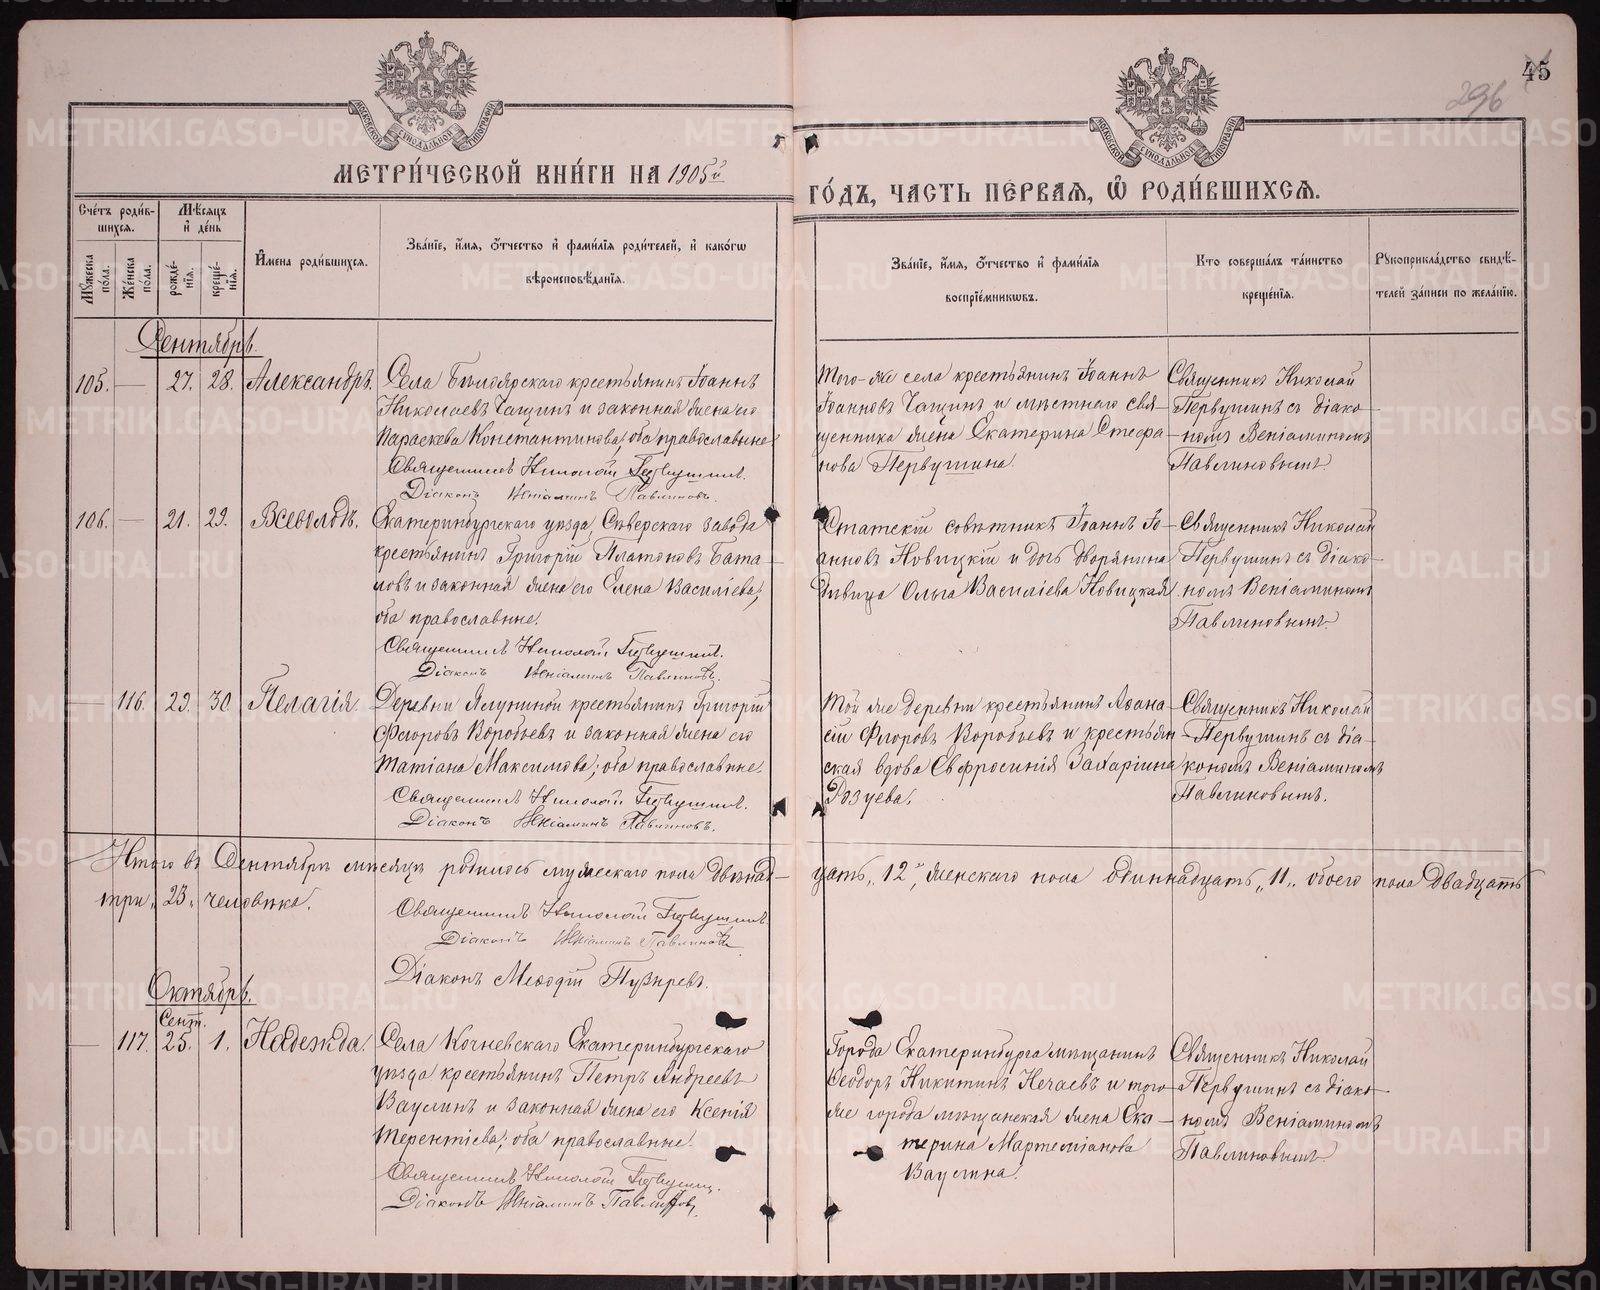 45
296
МЕТРИ́ЧЕСКОЙ КНИ́ГИ НА 1905й
ГО́ДЪ, ЧАСТЬ ПЕ́РВАЯ, Ѿ РОДИ́ВШИХСЯ.
Сче́тъ роди́в-
шихся.
Мѣ́сяцъ
и҆ де́нь
Мꙋ́жеска
по́ла.
Же́нска
по́ла.
рожде́-
нїя.
креще́-
нїя.
И҆мена роди́вшихся.
Зва́нїе, и҆́мя, ѻ҆́тчество и҆ фами́лїя роди́телей, и҆ како́гѡ
вѣроисповѣ́данїя.
Зва́нїе, и҆́мя, ѻ҆́тчество и҆ фами́лїя
воспрїе́мникѡвъ.
Кто соверша́лъ та́инство
креще́нїя.
Рꙋкоприкла́дство свидѣ́-
телей за́писи по жела́нїю.
Сентябрь.
105. — 27. 28. Александръ.
Села Бѣлоярскаго крестьянинъ Іоаннъ
Николаевъ Чащинъ и законная жена его
Параскева Константинова; оба православные
Священникъ Николай Первушинъ.
Діаконъ Веніаминъ Павлиновъ.
Того-же села крестьянинъ Іоаннъ
Іоанновъ Чащинъ и мѣстнаго свя-
щенника жена Екатерина Стефа-
нова Первушина.
Священникъ Николай
Первушинъ съ діако-
номъ Веніаминомъ
Павлиновымъ.
106. — 21. 29. Всеволодъ.
Екатеринбургскаго уѣзда, Сѣверскаго завода
крестьянинъ Григорій Платоновъ Бата-
ловъ и законная жена его Елена Василіева;
оба православные.
Священникъ Николай Первушинъ.
Діаконъ Веніаминъ Павлиновъ.
Статскій совѣтникъ Іоаннъ Іо-
анновъ Новицкій и дочь дворянина
дѣвица Ольга Василіева Новицкая.
Священникъ Николай
Первушинъ съ діако-
номъ Веніаминомъ
Павлиновымъ.
— 116. 29. 30. Пелагія.
Деревни Ялуниной крестьянинъ Григорій
Флоровъ Воробьевъ и законная жена его
Татіана Максимова; оба православные.
Священникъ Николай Первушинъ.
Діаконъ Веніаминъ Павлиновъ.
Той же деревни крестьянинъ Аѳана-
сій Флоровъ Воробьевъ и крестьян-
ская вдова Евфросинія Захаріина
Розуева.
Священникъ Николай
Первушинъ съ діа-
кономъ Веніаминомъ
Павлиновымъ.
Итого въ Сентябрѣ мѣсяцѣ родилось мужескаго пола двѣнад-
цать „12“, женскаго пола одиннадцать „11„ обоего пола двадцать
три „23„ человѣка.
Священникъ Николай Первушинъ.
Діаконъ Веніаминъ Павлиновъ
Діаконъ Меѳодій Пузыревъ.
Октябрь.
Сент.
— 117. 25. 1. Надежда.
Села Кочневскаго Екатеринбургскаго
уѣзда крестьянинъ Петръ Андреевъ
Ваулинъ и законная жена его Ксенія
Терентіева; оба православные.
Священникъ Николай Первушинъ.
Діаконъ Веніаминъ Павлиновъ.
Города Екатеринбурга мѣщанинъ
Ѳеодоръ Никитинъ Нечаевъ и того-
же города мѣщанская жена Ека-
терина Мартеміанова
Ваулина.
Священникъ Николай
Первушинъ съ діако-
номъ Веніаминомъ
Павлиновымъ.
METRIKI.GASO-URAL.RU